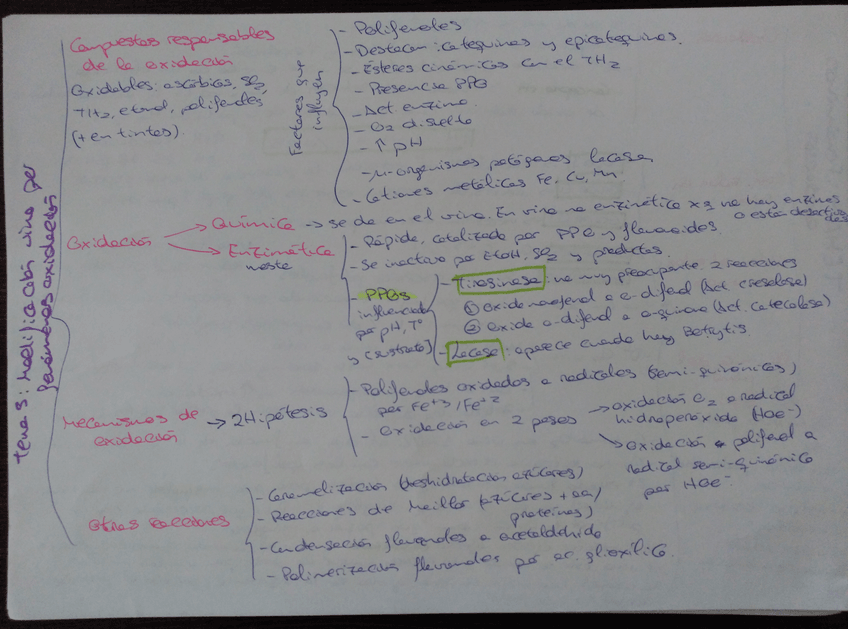 Tema 3: Modificación vino por
fenómenos oxidación
Compuestos responsables
de la oxidación
Oxidables: ascórbico, SO2,
TH2, etanol, polifenoles
(+ en tintos).
Factores que
influyen
- Polifenoles
- Destacan: catequinas y epicatequinas.
- Ésteres cinámicos con el TH2
- Presencia PPO
- Act enzima
- O2 disuelto
- ↑ pH
- μ-organismos patógenos lacasa
- Cationes metálicos Fe, Cu, Mn
Oxidación
→ Química → se da en el vino. En vino no enzimática xq no hay enzimas
o están desactivadas
→ Enzimática
mosto
- Rápida, catalizada por PPO y flavonoides.
- Se inactiva por EtOH, SO2 y productos.
- PPOs
influenciadas
por pH, Tª
y [sustrato]
- Tirosinasa: no muy preocupante. 2 reacciones
① Oxida monofenol a o-difenol (Act cresolasa)
② Oxida o-difenol a o-quinona (Act. catecolasa)
- Lacasa: aparece cuando hay Botrytis.
Mecanismos de
oxidación
→ 2 Hipótesis
- Polifenoles oxidados a radicales (semi-quinónicos)
por Fe+3/Fe+2
- Oxidación en 2 pasos → oxidación O2 a radical
hidroperóxido (HOO-)
↘ oxidación polifenol a
radical semi-quinónico
por HOO-
Otras reacciones
- Caramelización (deshidratación azúcares)
- Reacciones de Maillar (azúcares + aa/
proteínas)
- Condensación flavanoles a acetaldehído
- Polimerización flavanoles por ac. glioxílico.